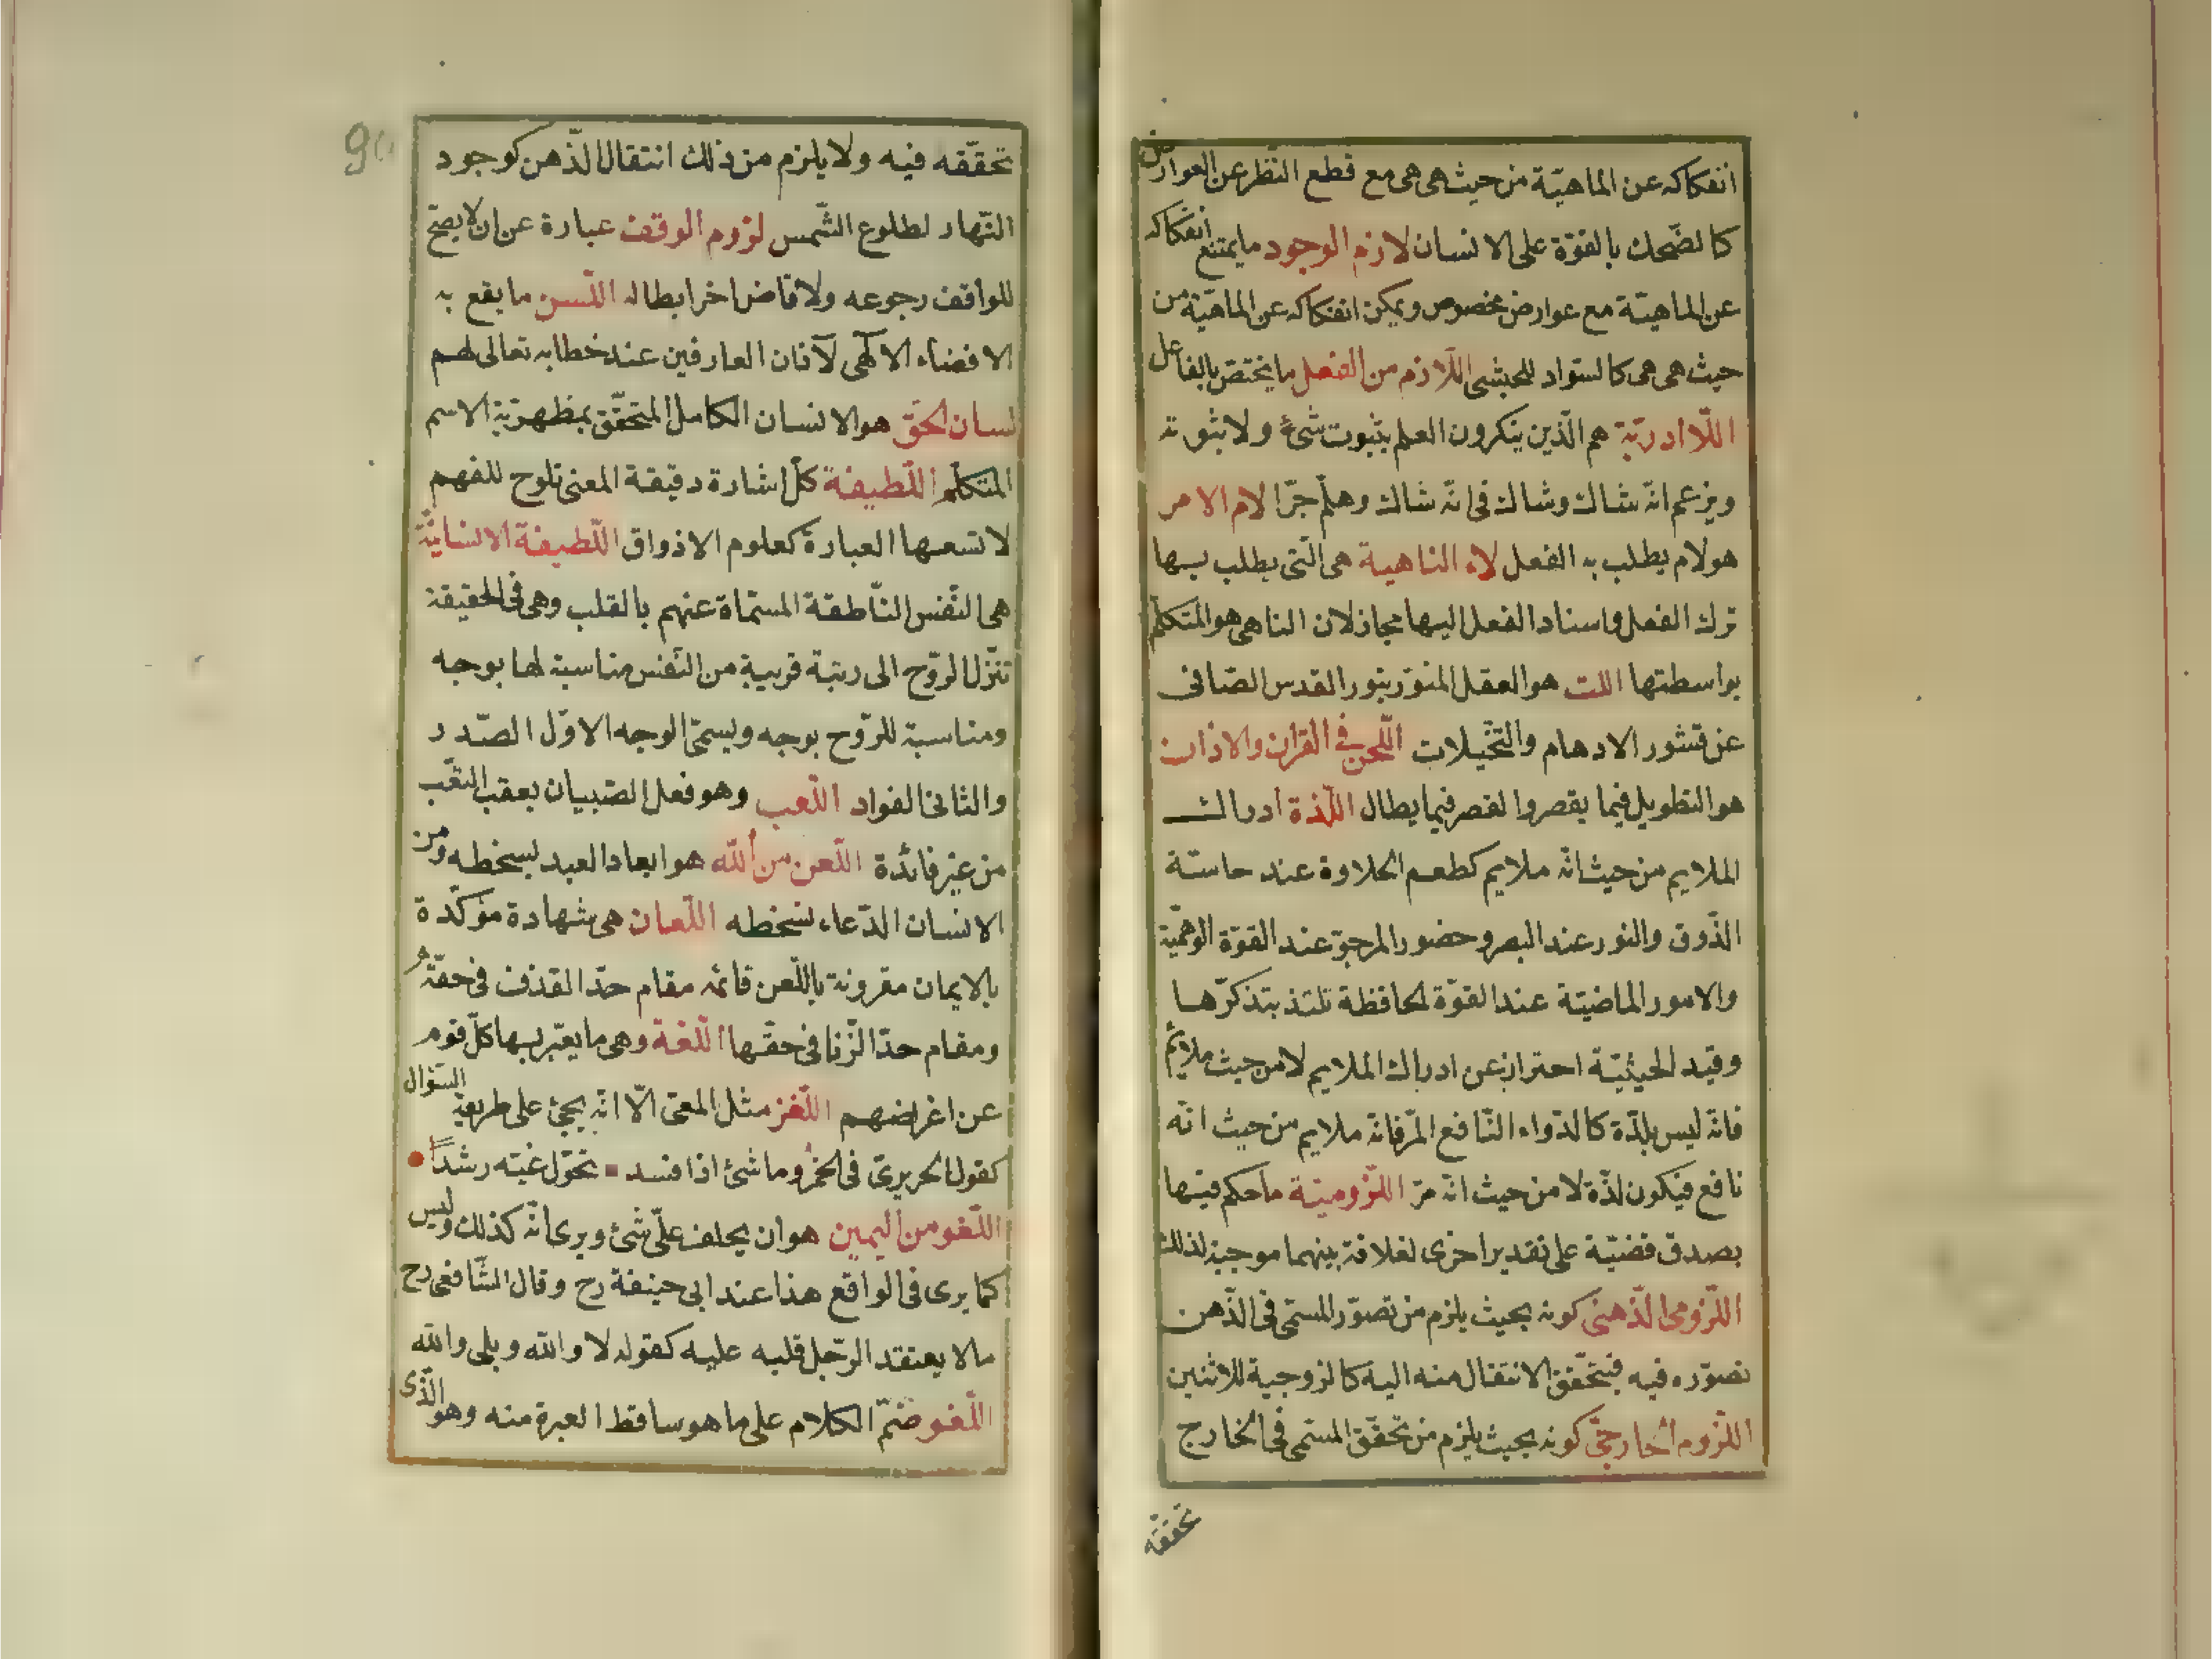 انفكاكه عن الماهيّة من حيث هى هى مع قطع النظر عن العوارض
كالضّحك بالقوّة على الانسان لازم الوجود ما يمتنع انفكاكه
عن الماهيّة مع عوارض مخصوص ويمكن انفكاكه عن الماهيّة من
حيث هى هى كالسّواد للحبشى اللّازم من الفعل ما يختصّ بالفاعل
اللّاادريّة هم الّذين ينكرون العلم بثبوت شئ ولا بثبوته
ويزعم انّه شاك وشاك فى انّه شاك وهلمّ جرّا لام الامر
هو لام يطلب به الفعل لاء الناهية هى الّتى يطلب بها
ترك الفعل واسناد الفعل اليها مجاز لان الناهى هو المتكلّم
بواسطتها اللب هو العقل المنوّر بنور القدس الصّافى
عن قشور الاوهام والتّخيلات اللّحن فى القران والاذان
هو التطويل فيما يقصر والقصر فيما يطال اللّذة ادراك
الملايم من حيث انّه ملايم كطعم الحلاوة عند حاسّة
الذّوق والنور عند البصر وحضور المرجوّ عند القوّة الوهميّة
والامور الماضيّة عند القوّة الحافظة تلتذ بتذكرّها
وقيد الحيثيّة احتراز عن ادراك الملايم لا من حيث ملايم
فانّه ليس بلذّة كالدّواء النّافع المرّ فانّه ملايم من حيث انّه
نافع فيكون لذّة لا من حيث انّه مرّ اللّزوميّة ما حكم فيها
بصدق قضيّة على تقدير اخرى لعلاقة بينهما موجبة لذلك
اللّزومى الّذهنى كونه بحيث يلزم من تصوّر المسمّى فى الذّهن
تصوّره فيه فيتحّقق الانتقال منه اليه كالزوجية للاثنين
اللّزوم الخارجىّ كونه بحيث يلزم من تحقّق المسمّى فى الخارج
تحققه
90
تحقّقه فيه ولا يلزم من ذلك انتقال الذّهن كوجود
النّهار لطلوع الشّمس لزوم الوقف عبارة عن ان لا يصحّ
للواقف رجوعه ولا قاض اخر ابطاله اللّسن ما يقع به
الافضاء الالهى لآذان العارفين عند خطابه تعالى لهم
لسان الحقّ هو الانسان الكامل المتحقّق بمظهريّة الاسم
المتكلّم اللّطيفة كلّ اشارة دقيقة المعنى تلوح للفهم
لا تسعها العبارة كعلوم الاذواق اللّطيفة الانسانيّة
هى النّفس النّاطقة المسمّاة عنهم بالقلب وهى فى الحقيقة
تنزّل الرّوح الى رتبة قريبة من النّفس مناسبة لها بوجه
ومناسبة للرّوح بوجه ويسمّى الوجه الاوّل الصّدر
والثانى الفواد اللّعب وهو فعل الصّبيان يعقب التّعب
من غير فائدة اللّعن من اللّه هو ابعاد العبد بسخطه ومن
الانسان الدّعاء بسخطه اللّعان هى شهادة مؤكّدة
بالايمان مقرونة باللّعن قائمه مقام حدّ القذف فى حقّه
ومقام حدّ الزّنا فى حقّها اللّغة وهى ما يعبّر بها كلّ قوم
عن اغراضهم اللّغز مثل المعمّى الّا انّه يجئ على طريقة السّؤال
كقول الحريرىّ فى الخمر وما شئ اذا فسد تحوّل غيّه رشداً
اللّغو من اليمين هو ان يحلف علّى شئ ويرى انّه كذلك وليس
كما يرى فى الواقع هذا عند ابى حنيفة رح وقال الشّافعى رح
ما لا يعتقد الرّجل قلبه عليه كقوله لا واللّه وبلى واللّه
اللّغو ضمّ الكلام على ما هو ساقط العبرة منه وهو الّذى